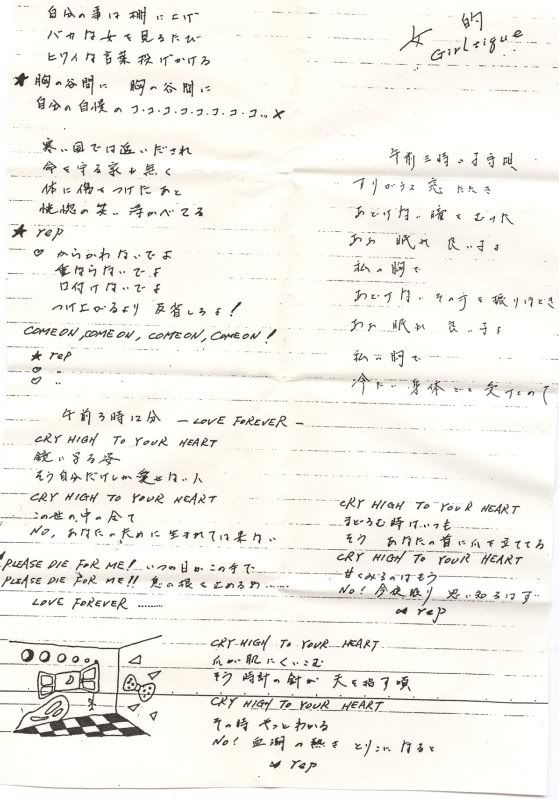 女的
自分の事は棚に上げ
バカな女を見るたび
ヒワイな言葉投げかける
★ 胸の谷間に 胸の谷間に
自分の自慢のコ・コ・コ・コ・コ・コ・コッ×
寒い国では追いだされ
命を守る家も無く
体に傷をつけたあと
恍惚の笑い浮かべてる
★ rep
♡ からかわないでよ
重ならないでよ
口付けないでよ
つけ上がるより 反省しろよ!
COMEON, COMEON, COMEON, COMEON!
★ rep
♡ 〃
♡ 〃
午前三時の子守唄
すりガラス窓たたき
あどけない瞳を
ああ 眠れ 良い子よ
私の胸で
あどけない その手を振りほどき
ああ 眠れ 良い子よ
私の胸で
冷たい身体ごと受けとめて
午前3時12分 ー LOVE FOREVER ー
CRY HIGH TO YOUR HEART
鏡に写る姿
そう自分だけしか愛せない人
CRY HIGH TO YOUR HEART
この世の中の全て
NO, あなたのために生まれては来ない
PLEASE DIE FOR ME! いつの日かこの手で
PLEASE DIE FOR ME!! 息の根を止めるわ……
LOVE FOREVER ………
CRY HIGH TO YOUR HEART
まどろむ時はいつも
そう あなたの首に爪を立ててる
CRY HIGH TO YOUR HEART
甘くみるのはもう
NO! 今夜限り 思い知るはず
rep
CRY HIGH TO YOUR HEART
爪が肌にくいこむ
そう 時計の針が 天を指す頃
CRY HIGH TO YOUR HEART
その時 やっとわかる
NO! 血潮の熱さ とりこになると
rep